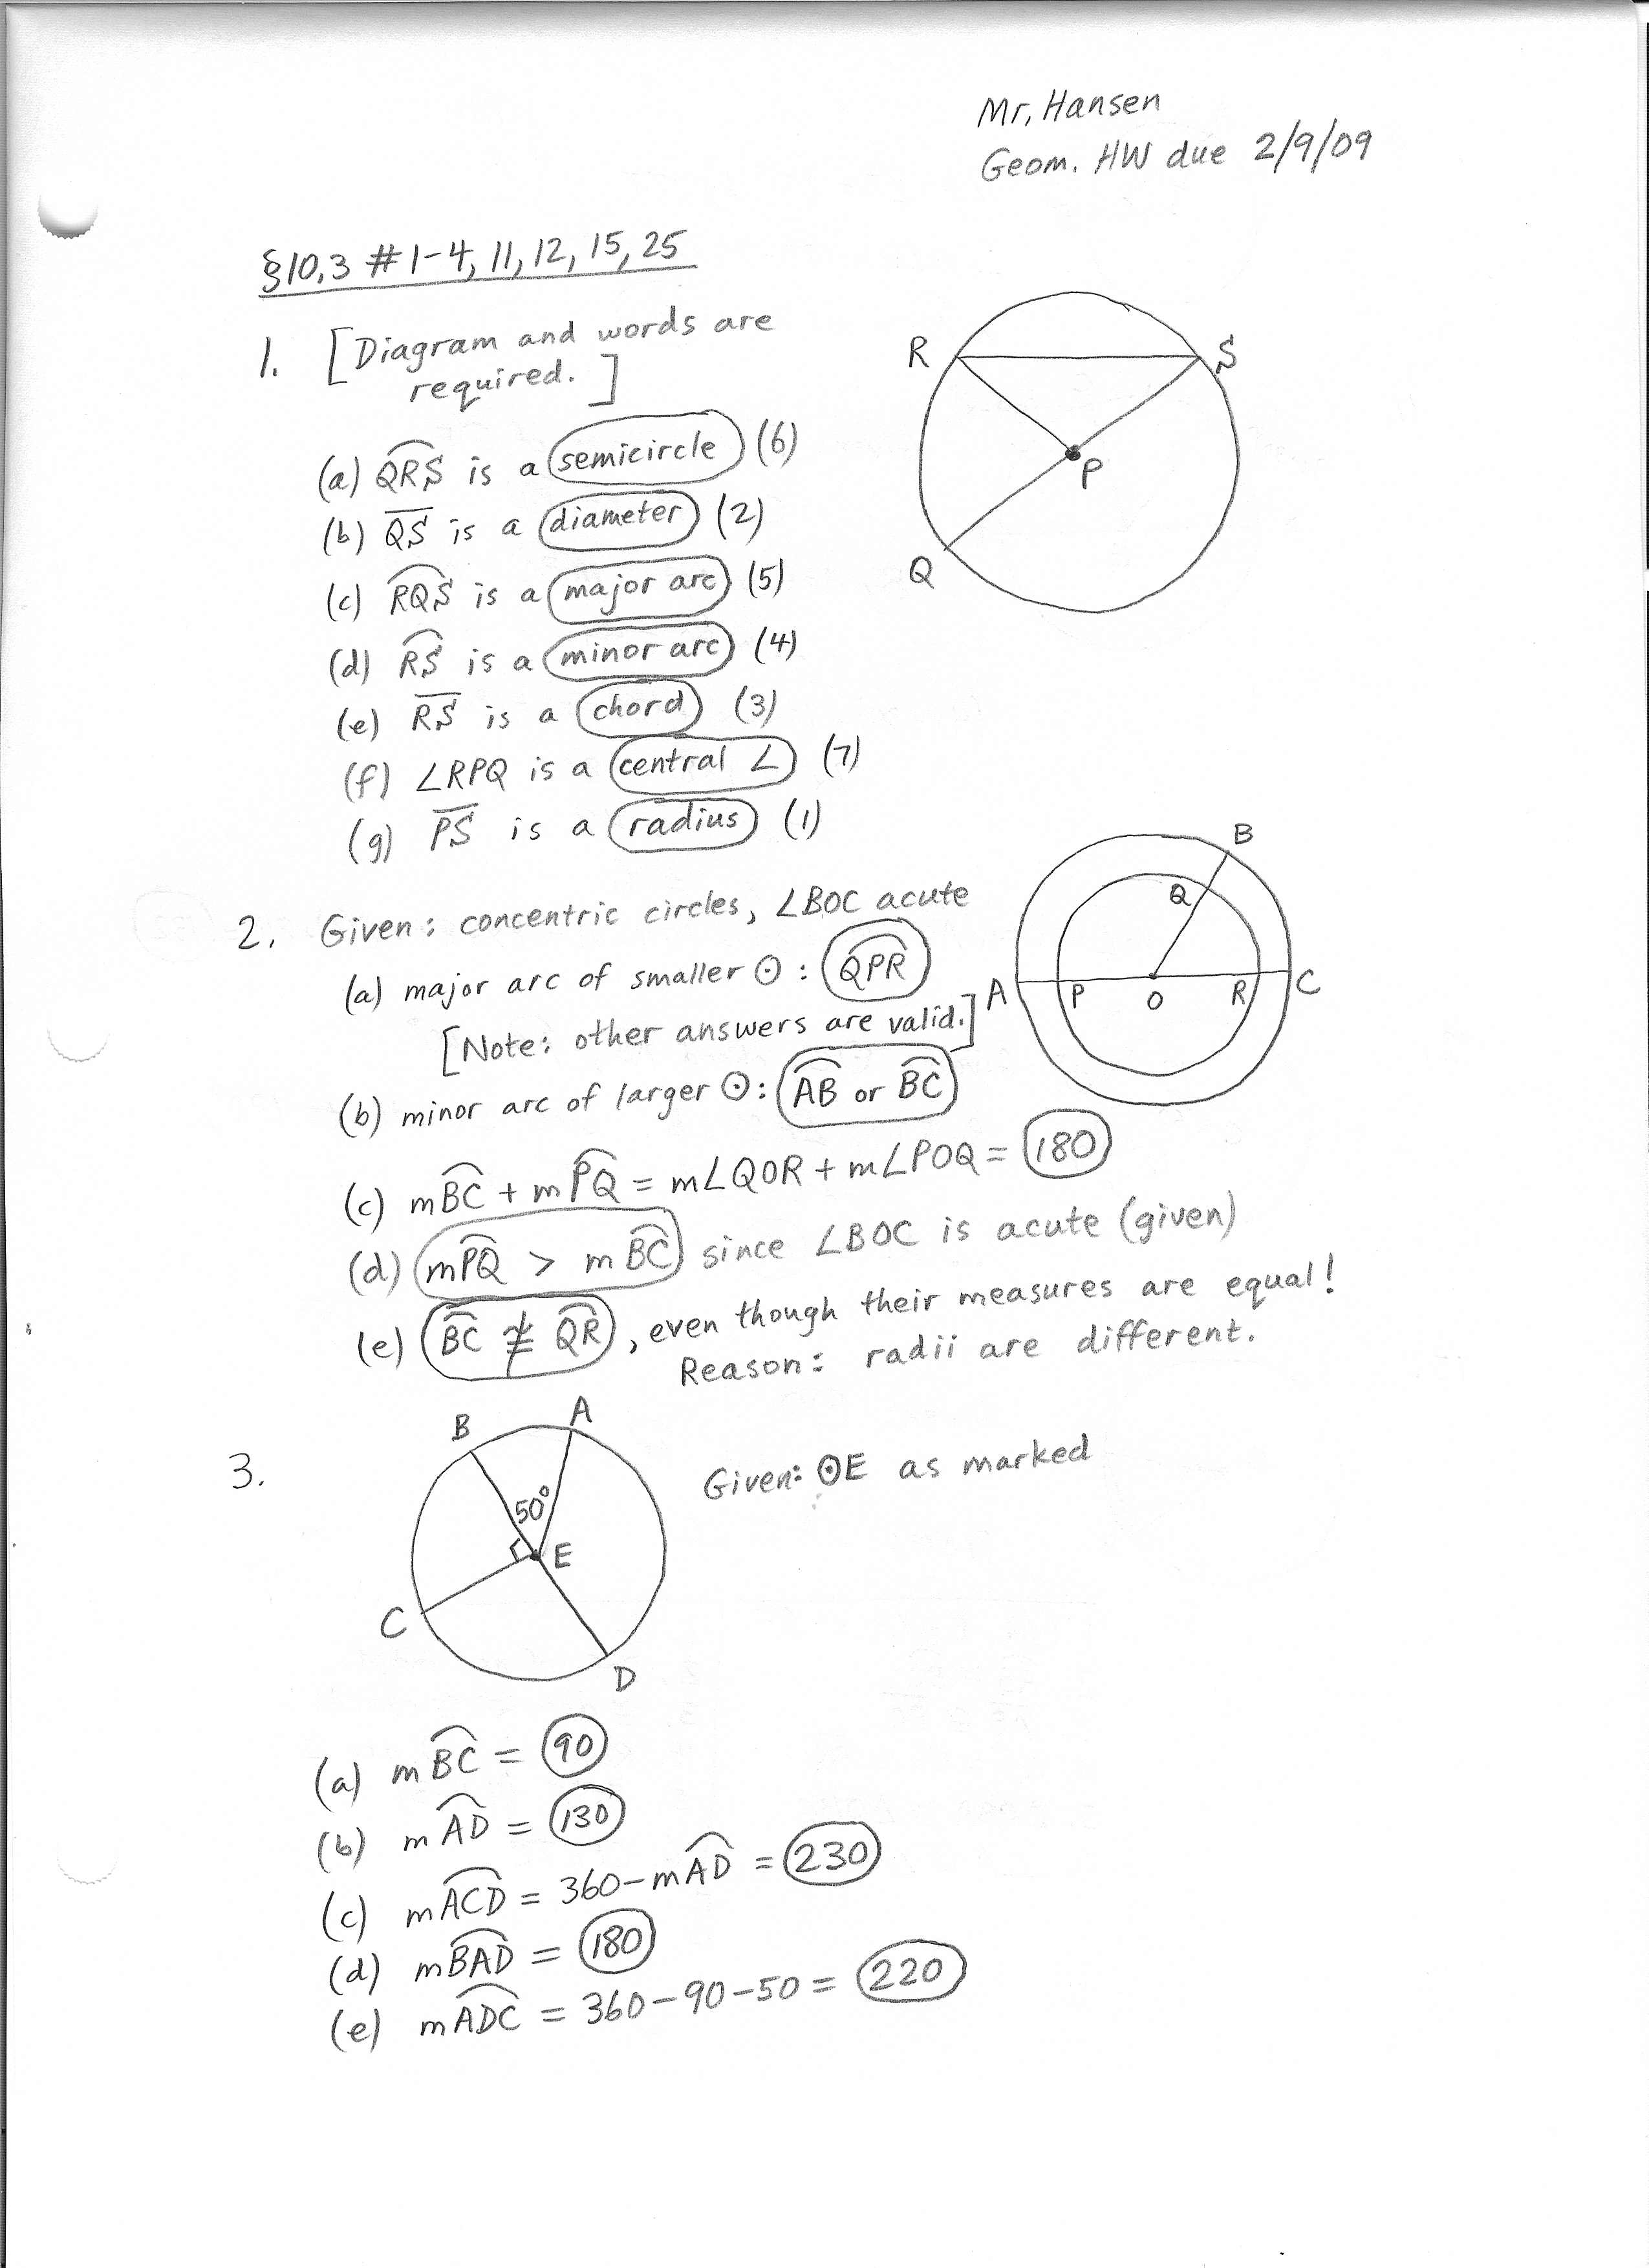 Mr. Hansen
Geom. HW due 2/9/09
§10.3 #1-4, 11, 12, 15, 25
1. [Diagram and words are
required.]
R S
P
Q
(a) QRS is a semicircle (6)
(b) QS is a diameter (2)
(c) RQS is a major arc (5)
(d) RS is a minor arc (4)
(e) RS is a chord (3)
(f) ∠RPQ is a central ∠ (7)
(g) PS is a radius (1)
2. Given: concentric circles, ∠BOC acute
B
Q
A P O R C
(a) major arc of smaller ⊙: QPR
[Note: other answers are valid.]
(b) minor arc of larger ⊙: AB or BC
(c) mBC + mPQ = m∠QOR + m∠POQ = 180
(d) mPQ > mBC since ∠BOC is acute (given)
(e) BC ≇ QR, even though their measures are equal!
Reason: radii are different.
3.
B A
50°
E
C
D
Given: ⊙E as marked
(a) mBC = 90
(b) mAD = 130
(c) mACD = 360-mAD = 230
(d) mBAD = 180
(e) mADC = 360-90-50 = 220